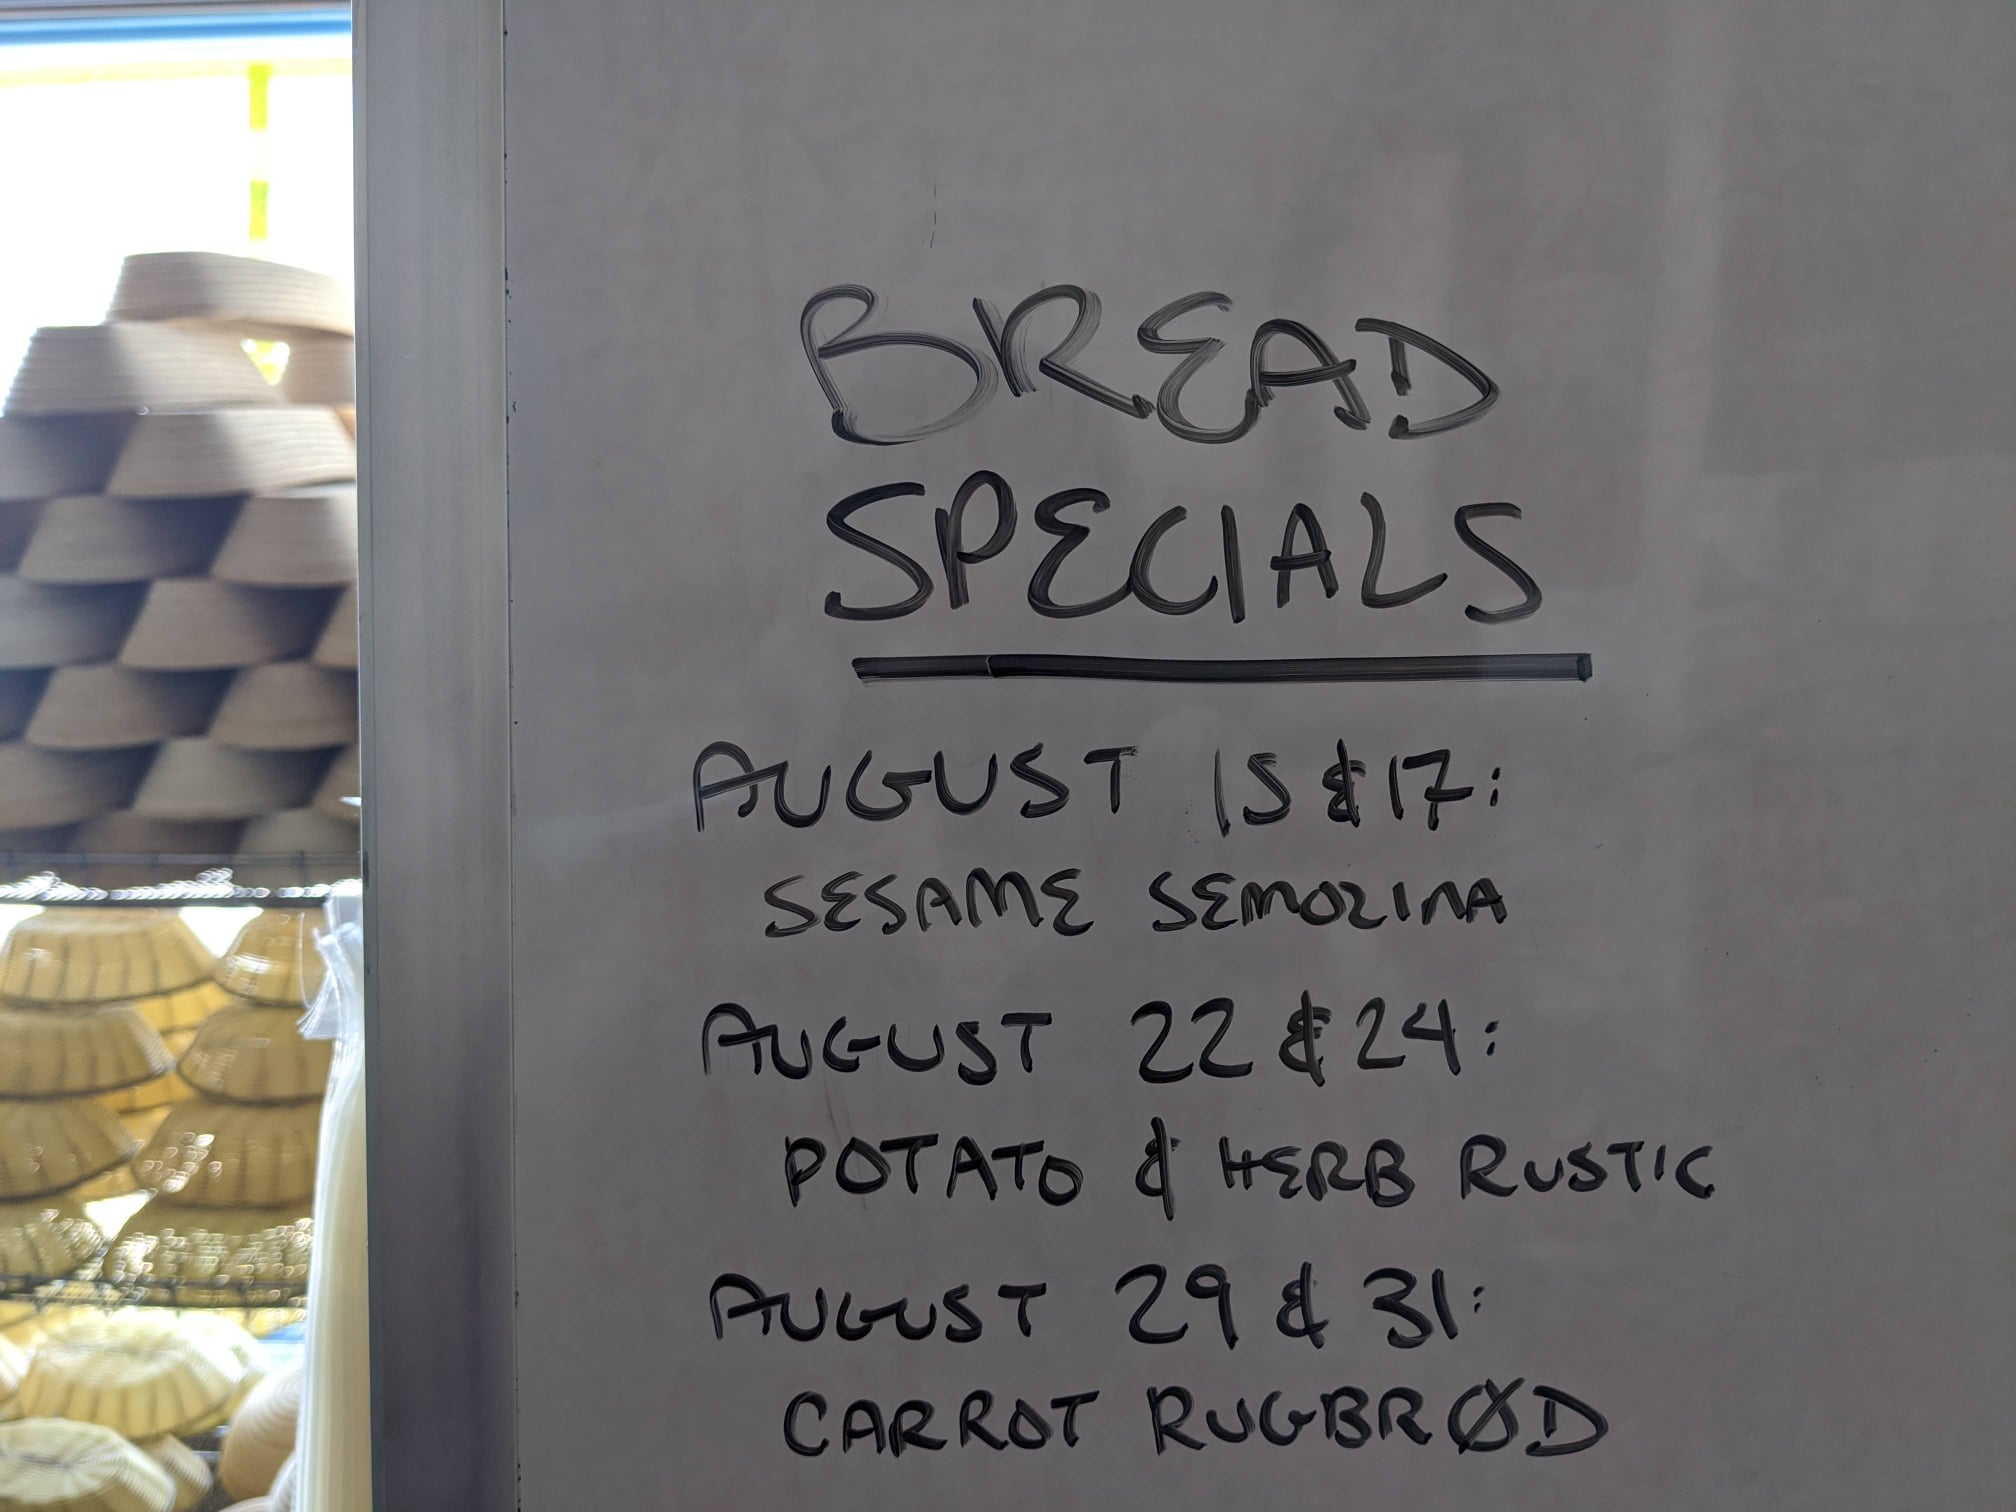 BREAD
SPECIALS
AUGUST 15 & 17:
SESAME SEMOLINA
AUGUST 22 & 24:
POTATO & HERB RUSTIC
AUGUST 29 & 31:
CARROT RUGBRØD